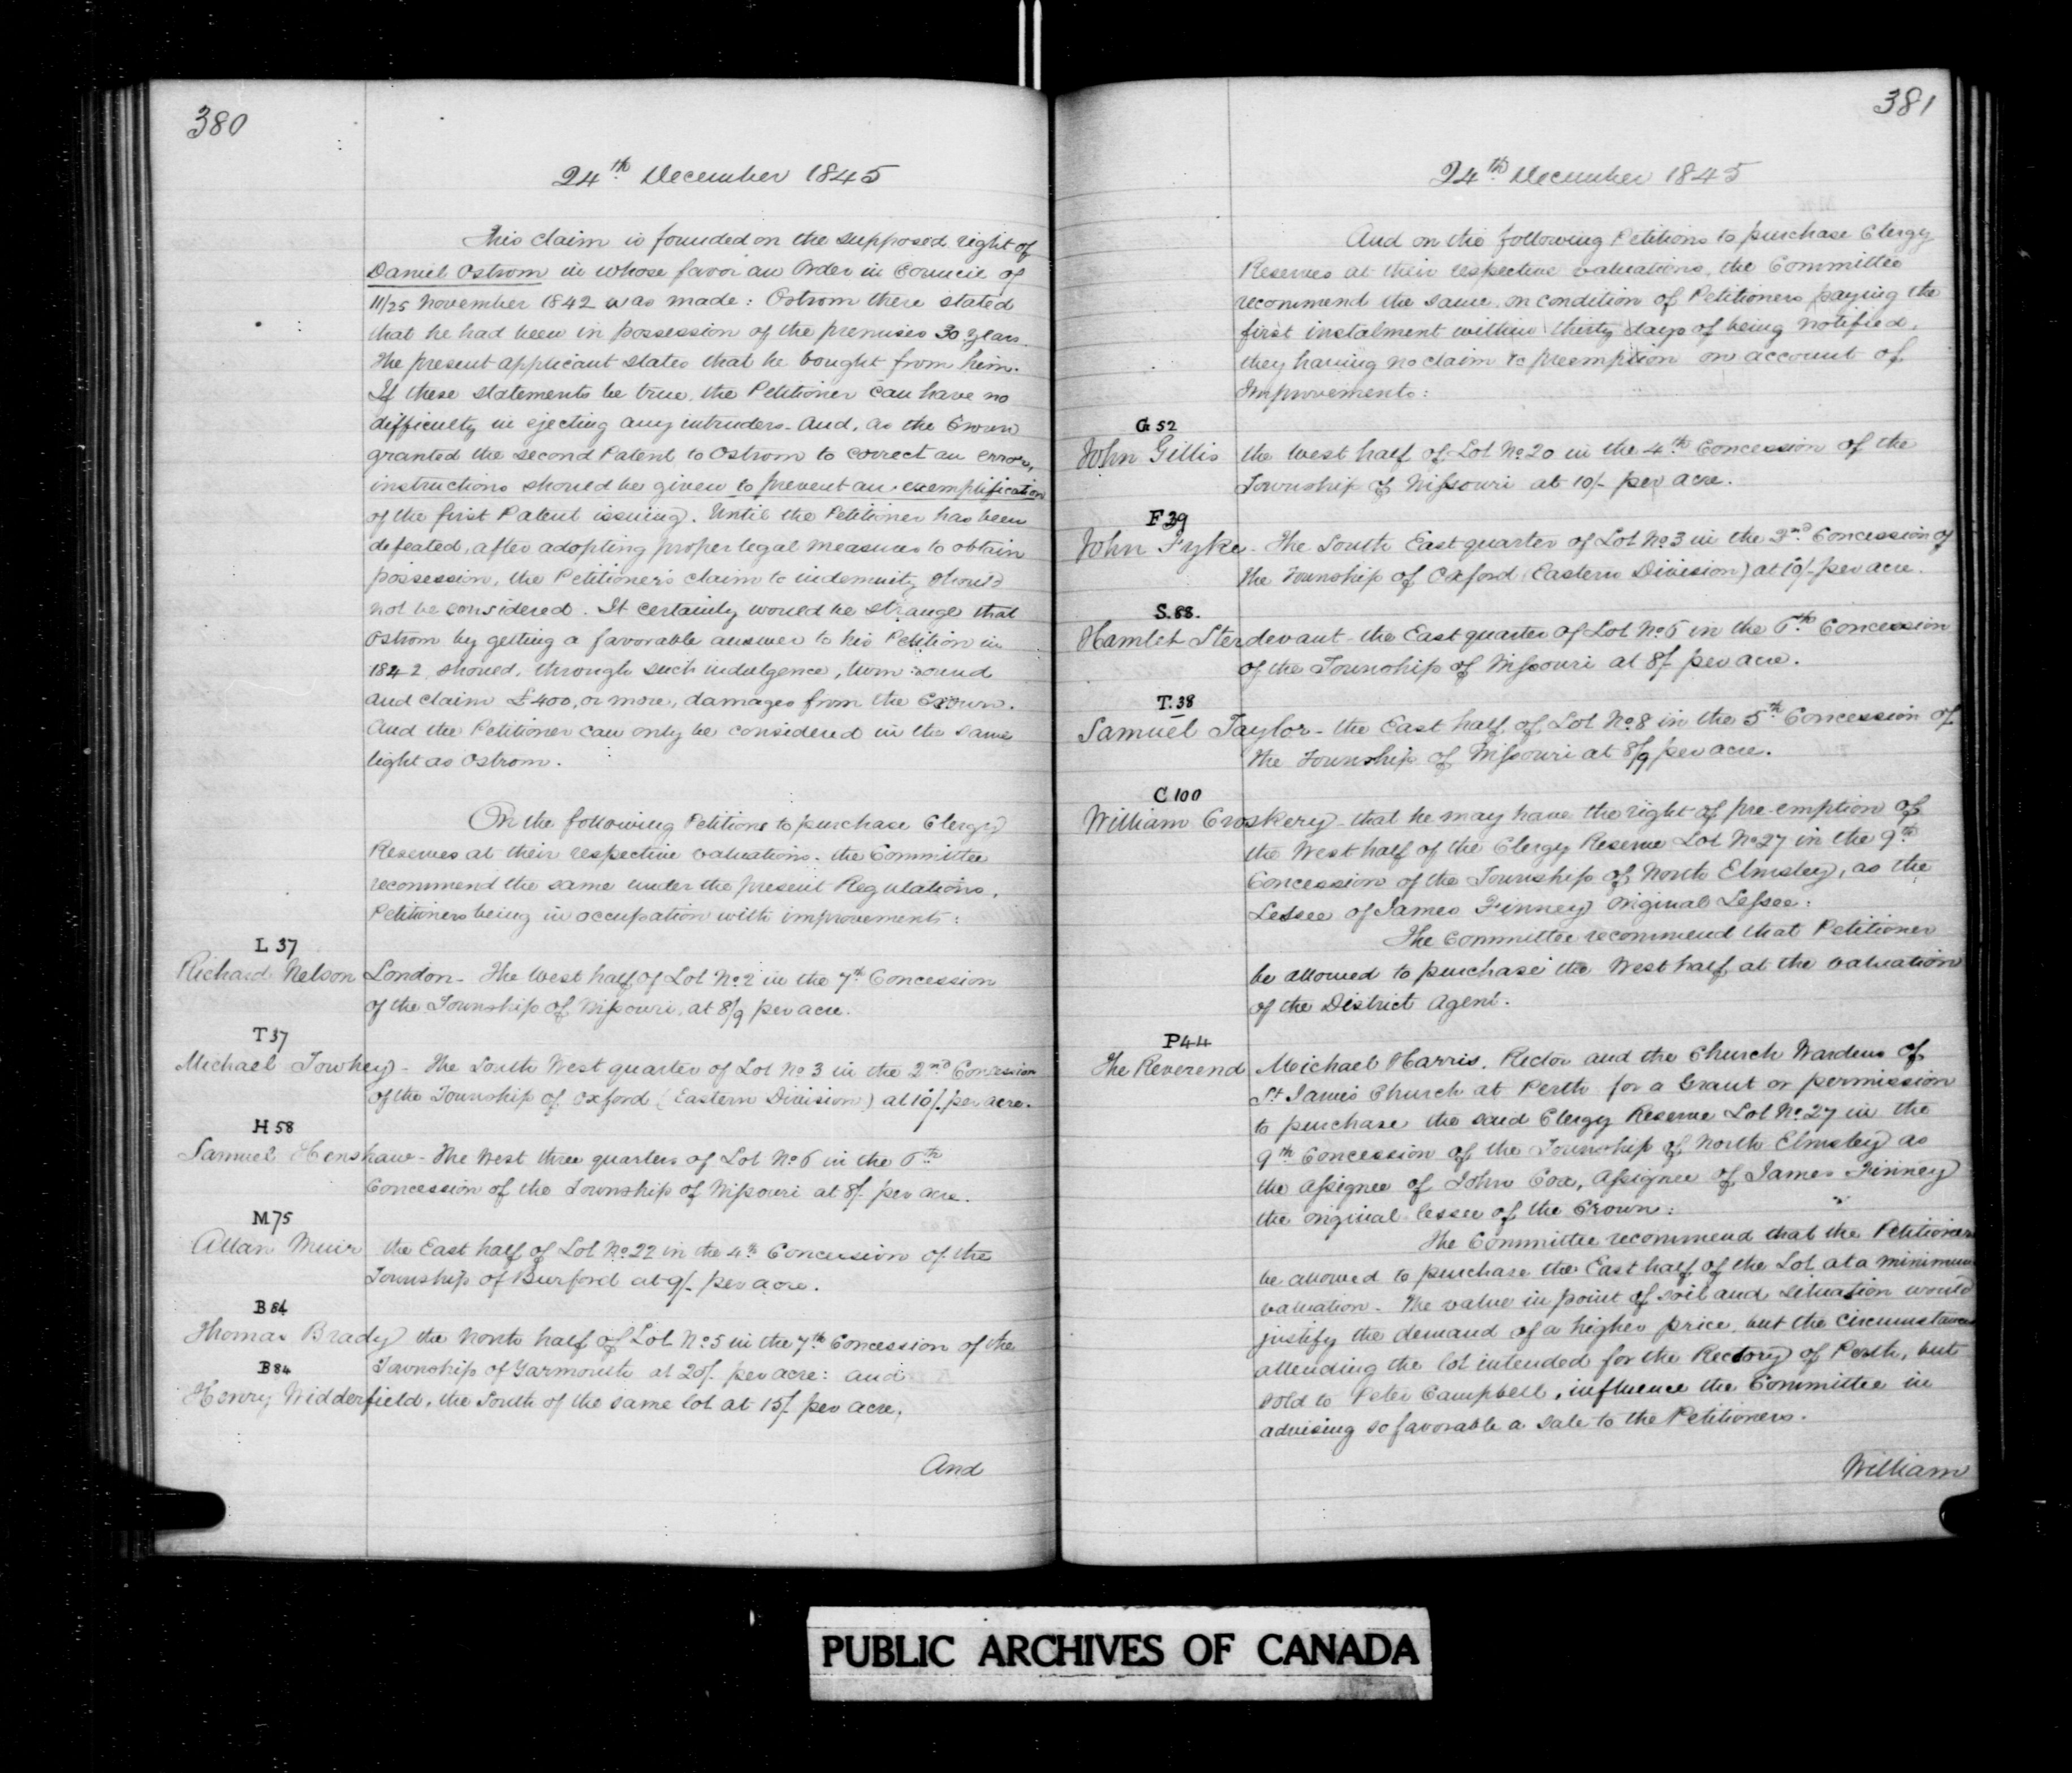 380
24th December 1845
This claim is founded on the supposed right of
Daniel Ostrom in whose favor an Order in Council of
11/25 November 1842 was made: Ostrom there stated
that he had been in possession of the premises 30 years.
The present applicant states that he bought from him.
If these statements be true, the Petitioner can have no
difficulty in ejecting any intruders. And, as the Crown
granted the second Patent to Ostrom to correct an error,
instructions should be given to prevent an exemplification
of the first Patent issuing. Until the Petitioner has been
defeated, after adopting proper legal measures to obtain
possession, the Petitioner's claim to indemnity should
not be considered. It certainly would be strange that
Ostrom by getting a favorable answer to his Petition in
1842, should, through such indulgence, turn round
and claim £400, or more, damages from the Crown.
And the Petitioner can only be considered in the same
light as Ostrom.
On the following Petitions to purchase Clergy
Reserves at their respective valuations, the Committee
recommend the same under the present Regulations,
Petitioners being in occupation with improvements:
L 37
Richard Nelson London - The West half of Lot No 2 in the 7th Concession
of the Township of Nissouri, at 8/9 per acre.
T 37
Michael Towhey - The South West quarter of Lot No 3 in the 2nd Concession
of the Township of Oxford (Eastern Division) at 10/- per acre.
H 58
Samuel Henshaw - The West three quarters of Lot No 6 in the 6th
Concession of the Township of Nissouri at 8/- per acre.
M 75
Allan Muir the East half of Lot No 22 in the 4th Concession of the
Township of Burford at 9/- per acre.
B 84
Thomas Brady the North half of Lot No 5 in the 7th Concession of the
Township of Yarmouth at 20/- per acre: and
B 84
Henry Widderfield, the South of the same lot at 15/- per acre,
And
381
24th December 1845
And on the following Petitions to purchase Clergy
Reserves at their respective valuations, the Committee
recommend the same, on condition of Petitioners paying the
first instalment within thirty days of being notified,
they having no claim to preemption on account of
Improvements:
G 52
John Gillis the West half of Lot No 20 in the 4th Concession of the
Township of Nissouri at 10/- per acre.
F 39
John Fyke - The South East quarter of Lot No 3 in the 2nd Concession of
the Township of Oxford (Eastern Division) at 10/- per acre.
S. 88.
Hamlet Sterdevant - the East quarter of Lot No 6 in the 6th Concession
of the Township of Nissouri at 8/- per acre.
T. 38
Samuel Taylor - the East half of Lot No 8 in the 5th Concession of
the Township of Nissouri at 8/9 per acre.
C 100
William Croskery - that he may have the right of pre-emption of
the West half of the Clergy Reserve Lot No 27 in the 9th
Concession of the Township of North Elmsley, as the
Lessee of James Finney original Lessee:
The Committee recommend that Petitioner
be allowed to purchase the West half at the valuation
of the District Agent.
P 44
The Reverend Michael Harris, Rector and the Church Wardens of
St James Church at Perth for a Grant or permission
to purchase the said Clergy Reserve Lot No 27 in the
9th Concession of the Township of North Elmsley as
the Assignee of John Cox, Assignee of James Finney
the original lessee of the Crown:
The Committee recommend that the Petitioners
be allowed to purchase the East half of the Lot at a minimum
valuation - The value in point of soil and situation would
justify the demand of a higher price, but the circumstances
attending the lot intended for the Rectory of Perth, but
sold to Peter Campbell, influence the Committee in
advising so favorable a sale to the Petitioners.
William
PUBLIC ARCHIVES OF CANADA